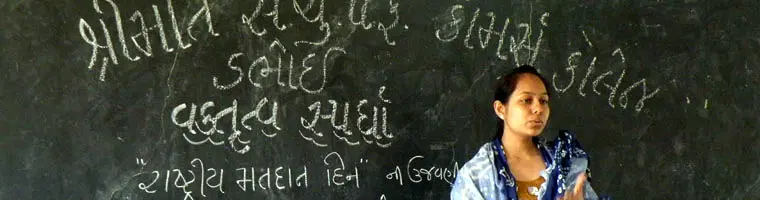 શ્રીમતિ સ.યુ.પ.ફ. કોમર્સ કોલેજ
ડભોઈ
વકતૃત્વ સ્પર્ધા
"રાષ્ટ્રીય મતદાન દિન" ની ઉજવણી